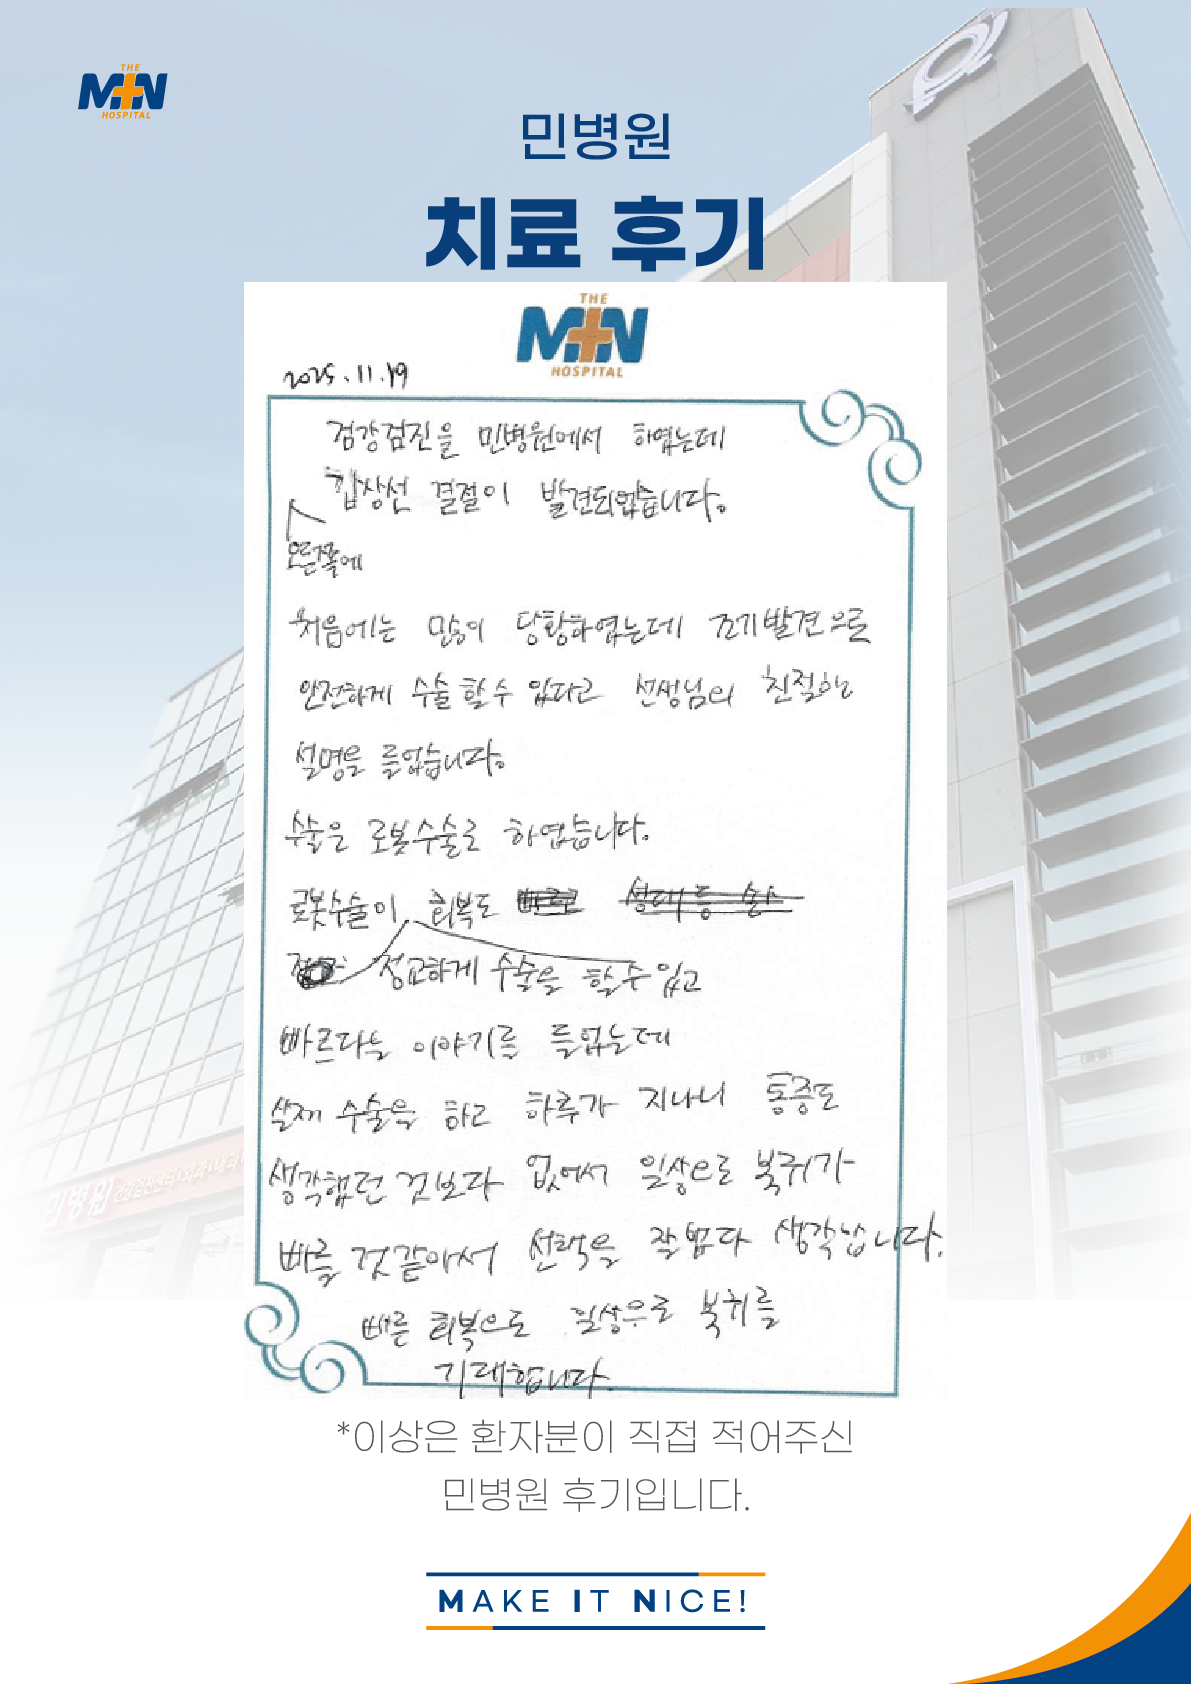 THE
MIN
HOSPITAL
민병원
치료 후기
THE
MIN
HOSPITAL
2025.11.19
검강검진을 민병원에서 하였는데
갑상선 결절이 발견되었습니다.
오른쪽에
처음에는 많이 당황하였는데 조기발견으로
안전하게 수술 할 수 있다고 선생님의 친절한
설명을 들었습니다.
수술은 로봇수술로 하였습니다.
로봇수술이 회복도
정교하게 수술을 할 수 있고
빠르다는 이야기를 들었는데
실제 수술을 하고 하루가 지나니 통증도
생각했던 것보다 없어서 일상으로 복귀가
빠를 것같아서 선택을 잘했다 생각납니다.
빠른 회복으로 일상우로 복귀를
기대합니다.
민병원 건강검진센터
*이상은 환자분이 직접 적어주신
민병원 후기입니다.
MAKE IT NICE!